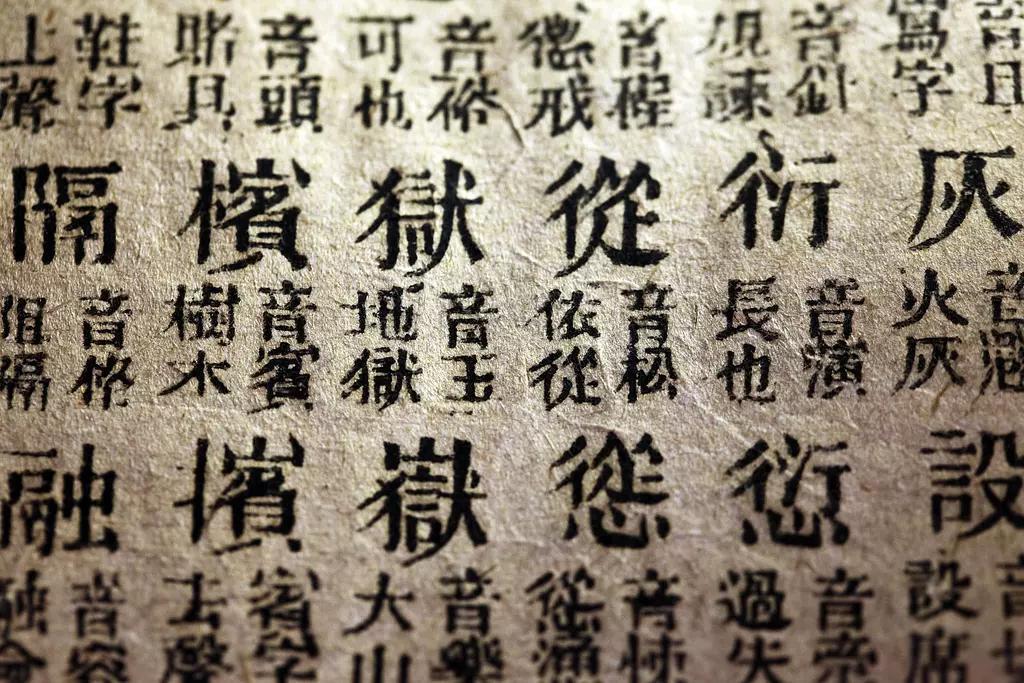 寫字
灰
音
火灰
設
音
設席
音針
規諫
衍
音演
長也
愆
音
過失
音
戒
從
音松
依從
慫
音悚
慫
音
可也
獄
音玉
地獄
嶽
音樂
大山
音頭
賭具
檳
音賓
樹木
擯
賓字
去聲
鞋字
上聲
隔
音格
阻隔
融
音容
融會